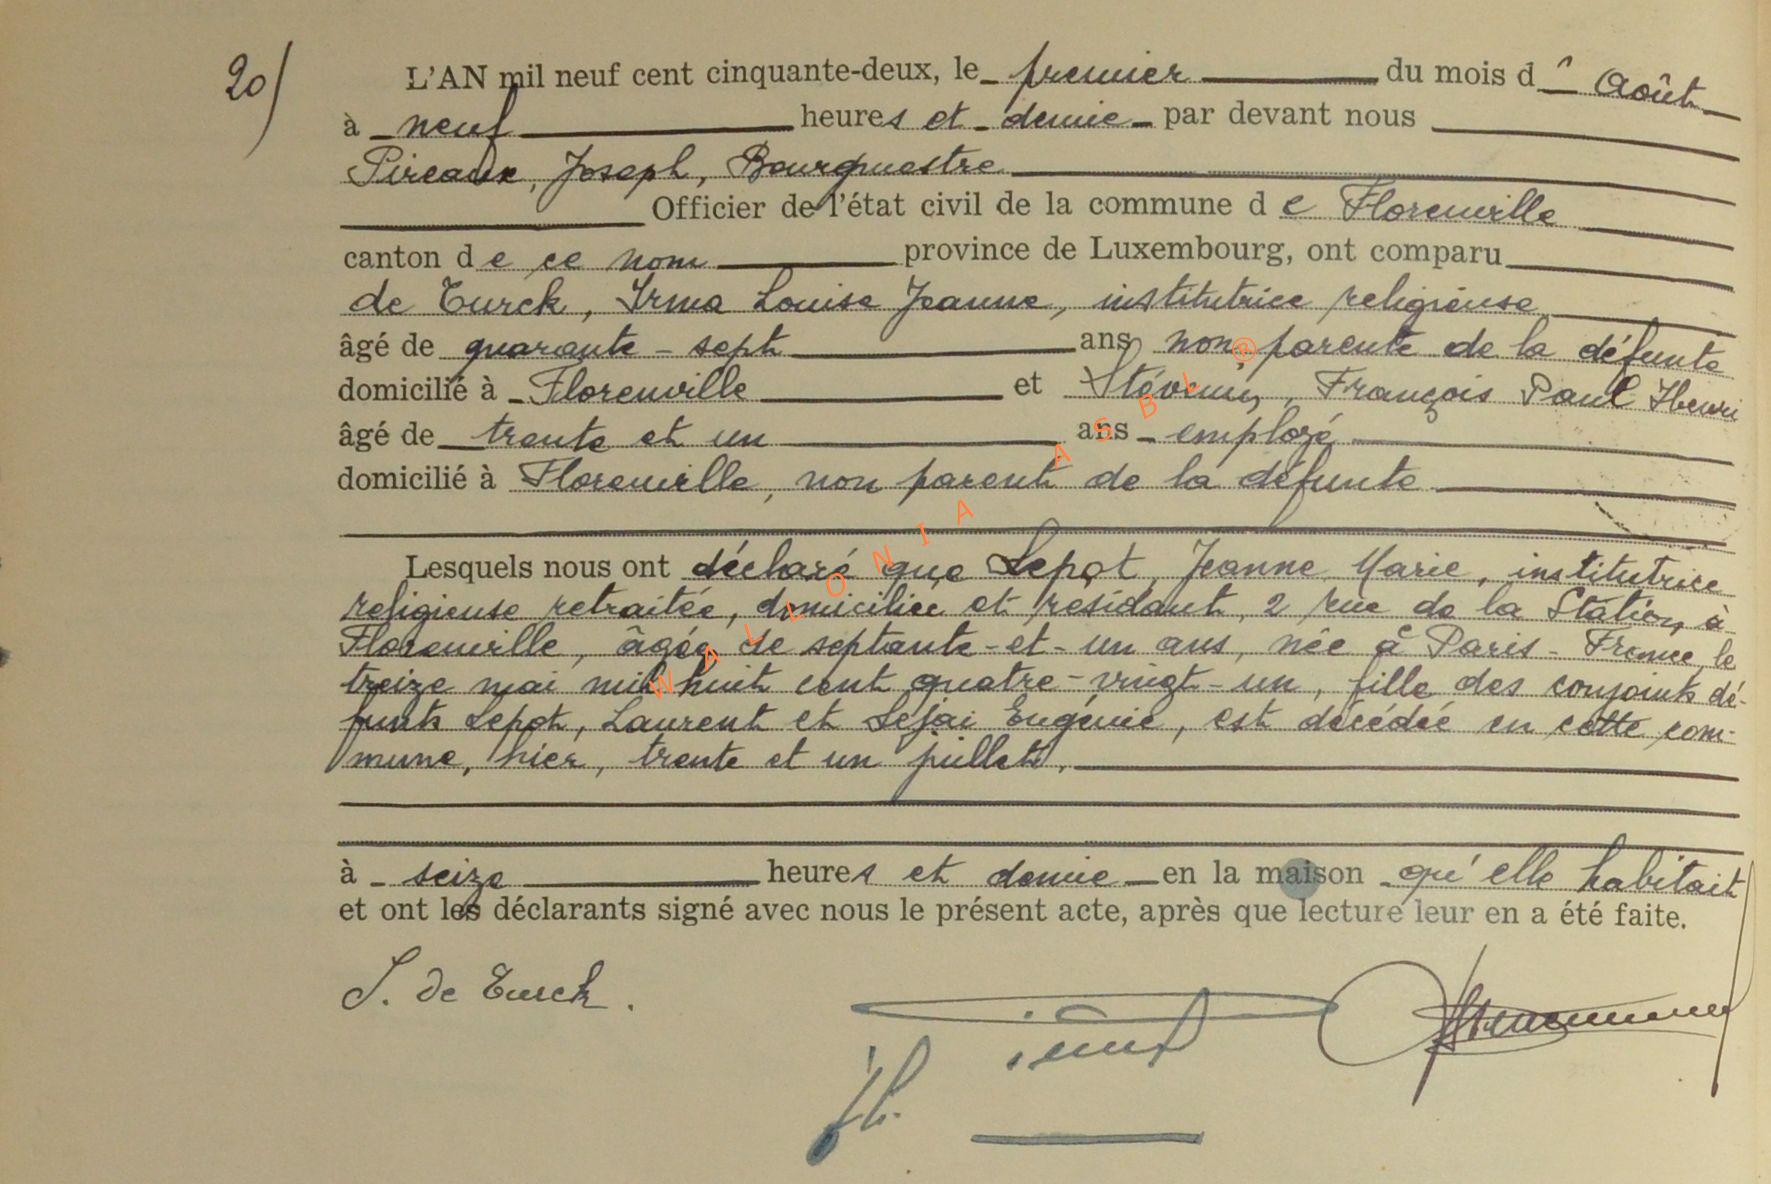 20/
L'AN mil neuf cent cinquante-deux, le premier du mois d'Août
à neuf heures et demie par devant nous
Pireaux, Joseph, Bourgmestre
Officier de l'état civil de la commune de Florenville
canton de ce nom province de Luxembourg, ont comparu
de Turck, Irma Louise Jeanne, institutrice religieuse
âgé de quarante-sept ans non parente de la défunte
domicilié à Florenville et Stévenin, François Paul Henri
âgé de trente et un ans employé
domicilié à Florenville, non parent de la défunte
Lesquels nous ont déclaré que Lepot, Jeanne Marie, institutrice
religieuse retraitée, domiciliée et résidant, 2 rue de la Station, à
Florenville, âgée de septante-et-un ans, née à Paris - France, le
treize mai mil huit cent quatre-vingt-un, fille des conjoints dé-
funts Lepot, Laurent et Lejai Eugénie, est décédée en cette com-
mune, hier, trente et un juillet,
à seize heures et demie en la maison qu'elle habitait
et ont les déclarants signé avec nous le présent acte, après que lecture leur en a été faite.
I. de Turck.
WALLONIA ASBL ®